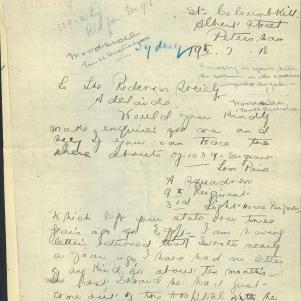 St. Columb Kill
Albert Street
Petersham
Woodside
Sydney
19th. 7 18
To The Red Cross Society
Adelaide.
Woodside,
South Australia
Would you kindly
make enquiries for me and
see if you can trace the
where abouts of 1039. Sergeant
Tom
A Squadron
9th Regiment
3rd Light Horse Brigade
Which left your state over three
years ago for Egypt — I am having
letters returned that I wrote nearly
a year ago, I have had no letter
of any kind for about ten months —
the last I heard he had just
come out of the Hospital with the